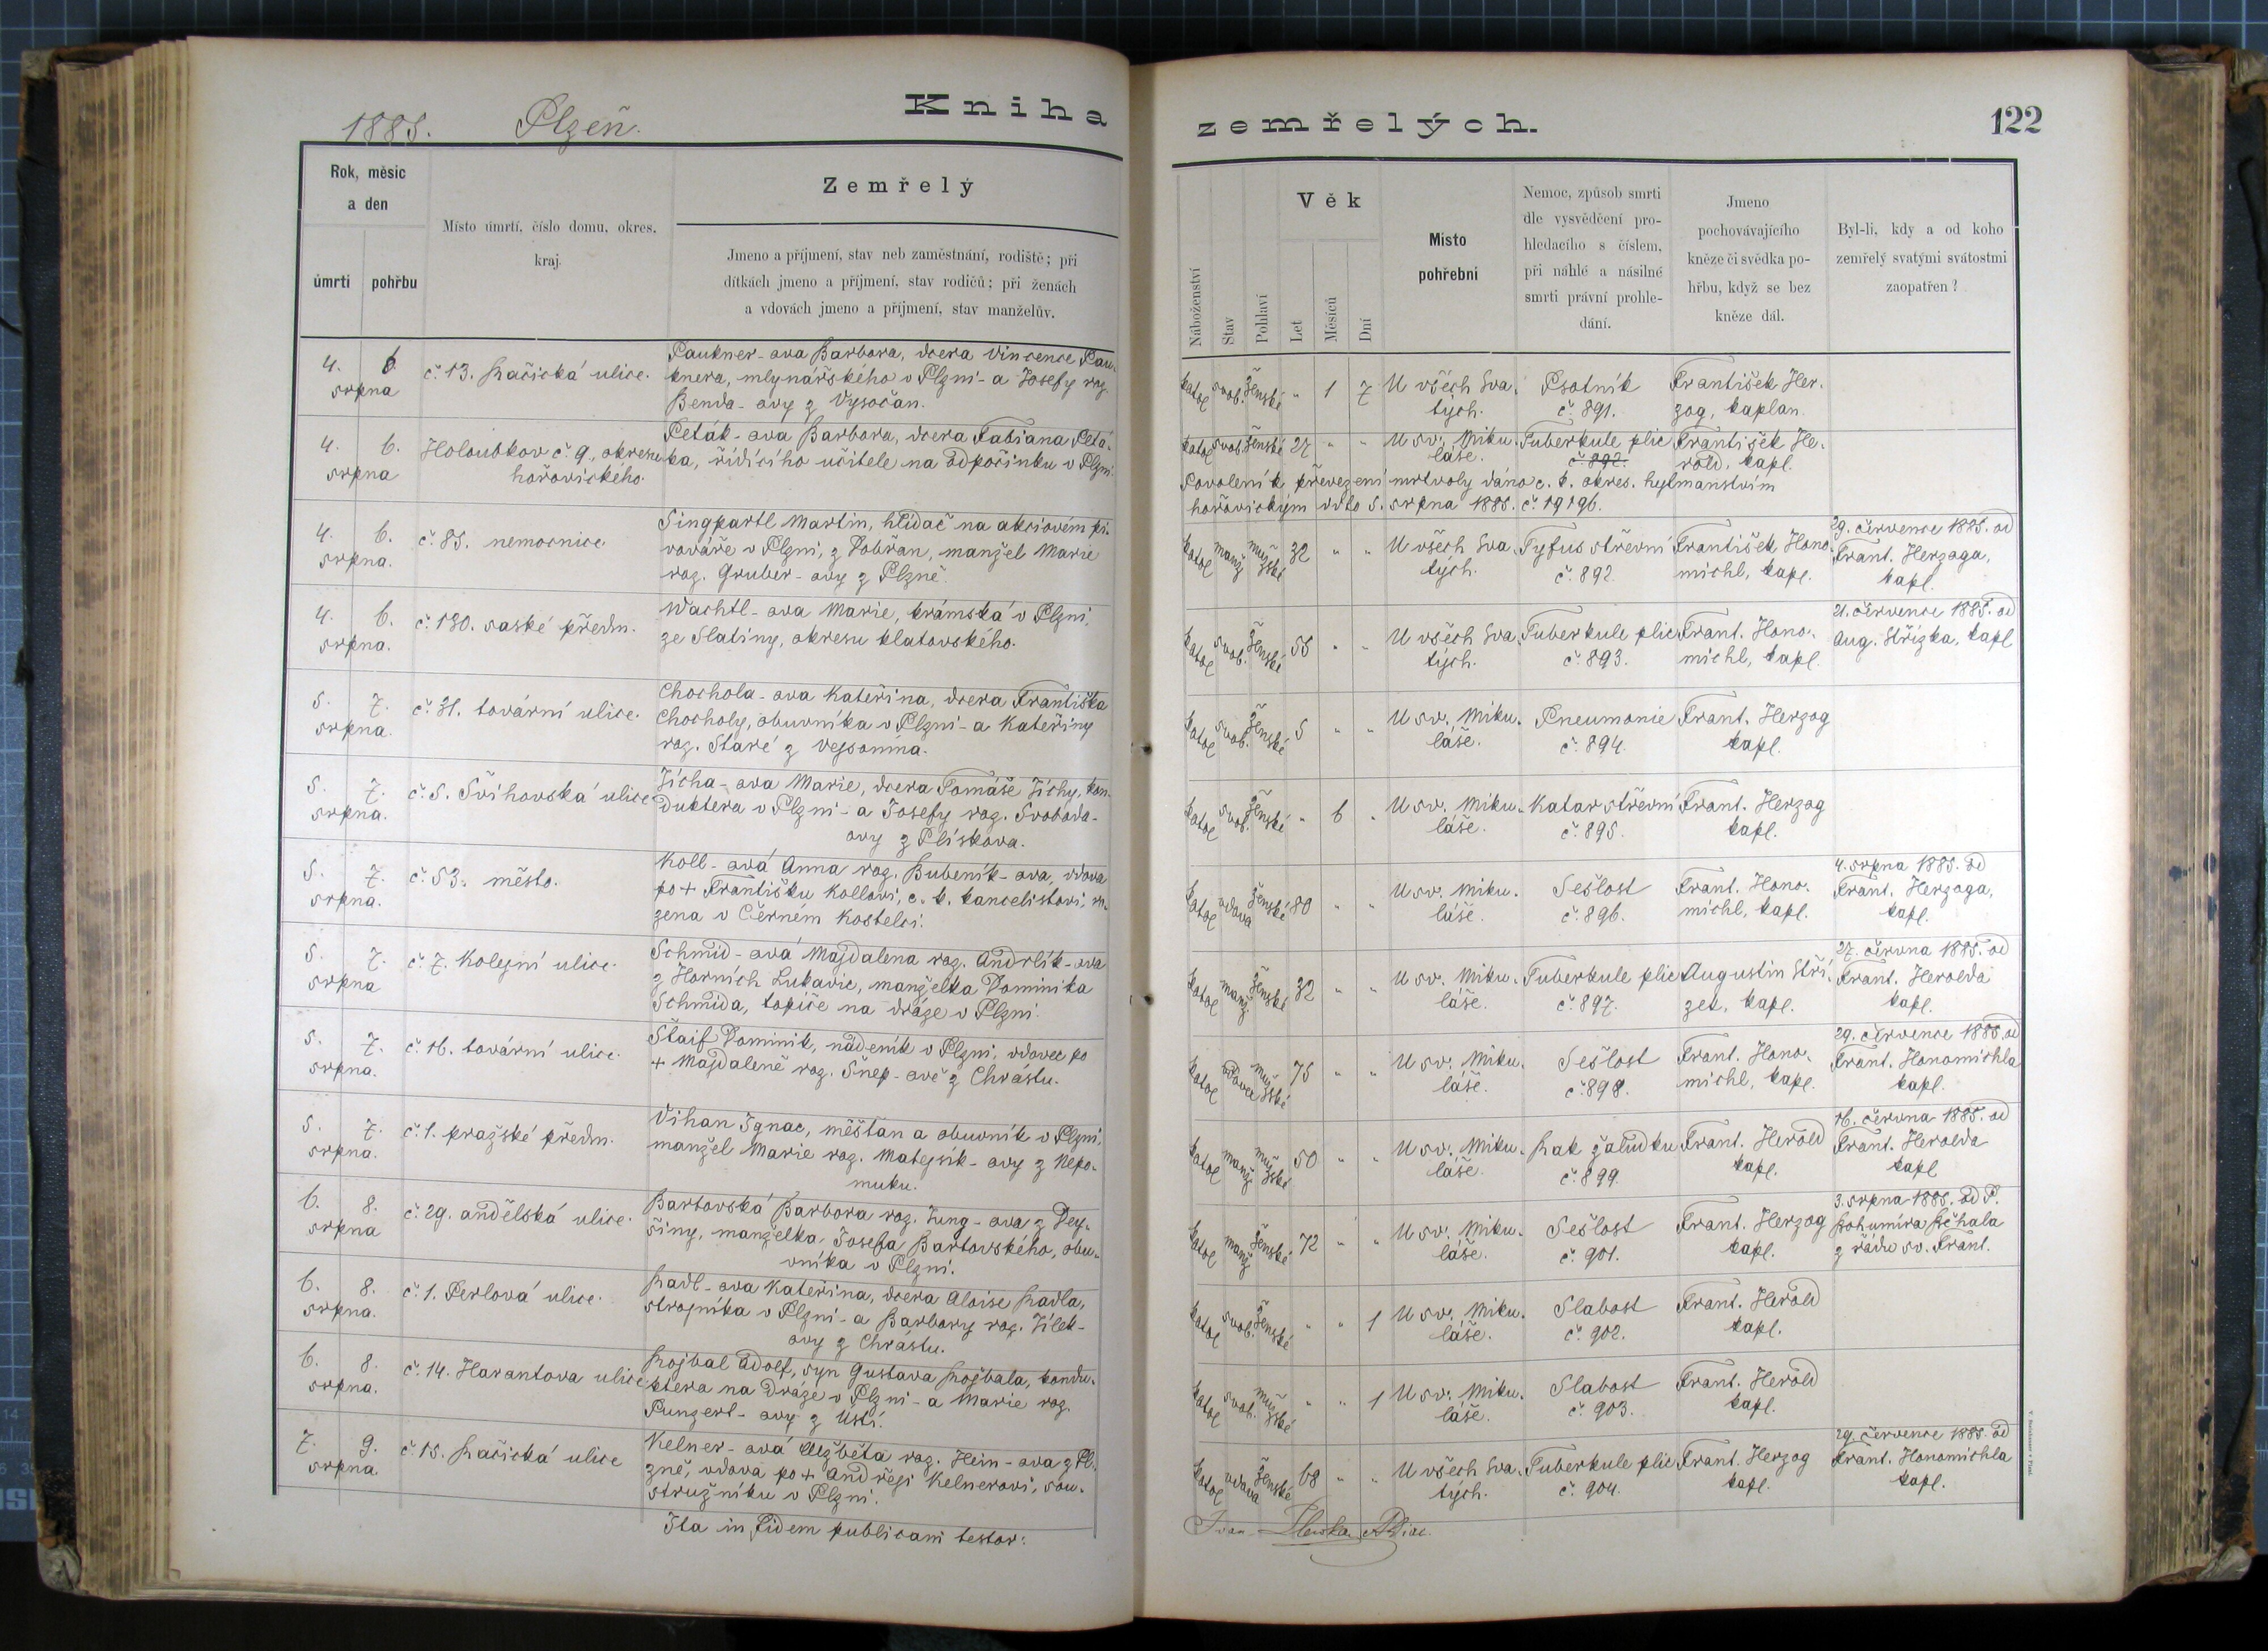 1885. Plzeň.
Kniha
zemřelých.
122
Rok, měsíc
a den
úmrtí
pohřbu
Místo úmrtí, číslo domu, okres,
kraj.
Zemřelý
Jmeno a příjmení, stav neb zaměstnání, rodiště; při
dítkách jmeno a příjmení, stav rodičů; při ženách
a vdovách jmeno a příjmení, stav manželův.
Náboženství
Stav
Pohlaví
Věk
Let
Měsíců
Dní
Místo
pohřební
Nemoc, způsob smrti
dle vysvědčení pro-
hledacího s číslem,
při náhlé a násilné
smrti právní prohle-
dání.
Jmeno
pochovávajícího
kněze či svědka po-
hřbu, když se bez
kněze dál.
Byl-li, kdy a od koho
zemřelý svatými svátostmi
zaopatřen?
4. 6.
srpna
č. 13. Račická ulice.
Paukner-ova Barbora, dcera Vincence Pau-
knera, mlynářského v Plzni - a Josefy roz.
Benda-ovy z Vysočan.
katol svob. ženské " 1 7
U všech Sva-
tých.
Psotník
č. 891.
František Her-
zog, kaplan.
4. 6.
srpna
Holoubkov č. 9, okresu
hořovického.
Peták-ova Barbora, dcera Fabiana Petá-
ka, řídícího učitele na odpočinku v Plzni.
katol svob. ženské 27 " "
U sv. Miku-
láše.
Tuberkule plic
č. 892.
František He-
rold, kapl.
Povolení k převezení mrtvoly dáno c. k. okres. hejtmanstvím
hořovickým ddto 5. srpna 1885. č. 19196.
4. 6.
srpna.
č. 85. nemocnice.
Singpartl Martin, hlídač na akciovém pi-
vováře v Plzni, z Dobřan, manžel Marie
roz. Gruber-ovy z Plzně.
katol manž mužské 32 " "
U všech Sva-
tých.
Tyfus střevní
č. 892.
František Hono-
michl, kapl.
29. července 1885. od
Frant. Herzoga,
kapl.
4. 6.
srpna.
č. 130. saské předm.
Wachtl-ova Marie, krámská v Plzni,
ze Slatiny, okresu klatovského.
katol svob. ženské 55 " "
U všech Sva-
tých.
Tuberkule plic
č. 893.
Frant. Hono-
michl, kapl.
21. července 1885. od
Aug. Střízka, kapl
5. 7.
srpna.
č. 31. tovární ulice.
Chochola-ova Kateřina, dcera Františka
Chocholy, obuvníka v Plzni - a Kateřiny
roz. Staré z Vejsonína.
katol svob. ženské 5 " "
U sv. Miku-
láše.
Pneumonie
č. 894.
Frant. Herzog
kapl.
5. 7.
srpna.
č. 5. Švihovská ulice
Jícha-ova Marie, dcera Tomáše Jíchy, kon-
duktera v Plzni - a Josefy roz. Svoboda-
ovy z Plískova.
katol svob. ženské " 6 "
U sv. Miku-
láše.
Katar střevní
č. 895.
Frant. Herzog
kapl.
5. 7.
srpna.
č. 53. město.
Koll-ová Anna roz. Bubeník-ova, vdova
po + Františku Kollovi, c. k. kancelistovi, ro-
zena v Černém Kostelci.
katol vdova ženské 80 " "
U sv. Miku-
láše.
Sešlost
č. 896.
Frant. Hono-
michl, kapl.
4. srpna 1885. od
Frant. Herzoga,
kapl.
5. 7.
srpna
č. 7. Kolejní ulice.
Schmid-ová Majdalena roz. Andrlík-ova
z Horních Lukavic, manželka Dominika
Schmida, topiče na dráze v Plzni.
katol manž ženské 32 " "
U sv. Miku-
láše.
Tuberkule plic
č. 897.
Augustin Stří-
zek, kapl.
27. června 1885. od
Frant. Herolda
kapl.
5. 7.
srpna.
č. 16. tovární ulice.
Štaif Dominik, nádeník v Plzni, vdovec po
+ Majdaleně roz. Šnep-ově z Chrástu.
katol vdovec mužské 75 " "
U sv. Miku-
láše.
Sešlost
č. 898.
Frant. Hono-
michl, kapl.
29. července 1885. od
Frant. Honomichla
kapl.
5. 7.
srpna.
č. 1. pražské předm.
Vihan Ignac, měšťan a obuvník v Plzni,
manžel Marie roz. Matejsik-ovy z Nepo-
muku.
katol manž mužské 50 " "
U sv. Miku-
láše.
Rak žaludku
č. 899.
Frant. Herold
kapl.
16. června 1885. od
Frant. Herolda
kapl
6. 8.
srpna
č. 29. andělská ulice.
Bartovská Barbora roz. Jung-ova z Dej-
šiny, manželka Josefa Bartovského, obu-
vníka v Plzni.
katol manž ženské 72 " "
U sv. Miku-
láše.
Sešlost
č. 901.
Frant. Herzog
kapl.
3. srpna 1885. od P.
Bohumíra
z řádu sv. Frant.
6. 8.
srpna.
č. 1. Perlová ulice.
Radl-ova Kateřina, dcera Aloise Radla,
strojníka v Plzni - a Barbory roz. Jílek-
ovy z Chrástu.
katol svob. ženské " " 1
U sv. Miku-
láše.
Slabost
č. 902.
Frant. Herold
kapl.
6. 8.
srpna.
č. 14. Harantova ulice
Rojbal Adolf, syn Gustava Rojbala, kondu-
ktera na Dráze v Plzni - a Marie roz.
Punzert-ovy z Ústí.
katol svob. mužské " " 1
U sv. Miku-
láše.
Slabost
č. 903.
Frant. Herold
kapl.
7. 9.
srpna.
č. 15. Račická ulice
Kelner-ová Alžběta roz. Hein-ova z Pl-
zně, vdova po + Andřeji Kelnerovi, sou-
stružníku v Plzni.
katol vdova ženské 68 " "
U všech Sva-
tých.
Tuberkule plic
č. 904.
Frant. Herzog
kapl.
29. července 1885. od
Frant. Honomichla
kapl.
Ita in fidem publicam testor: